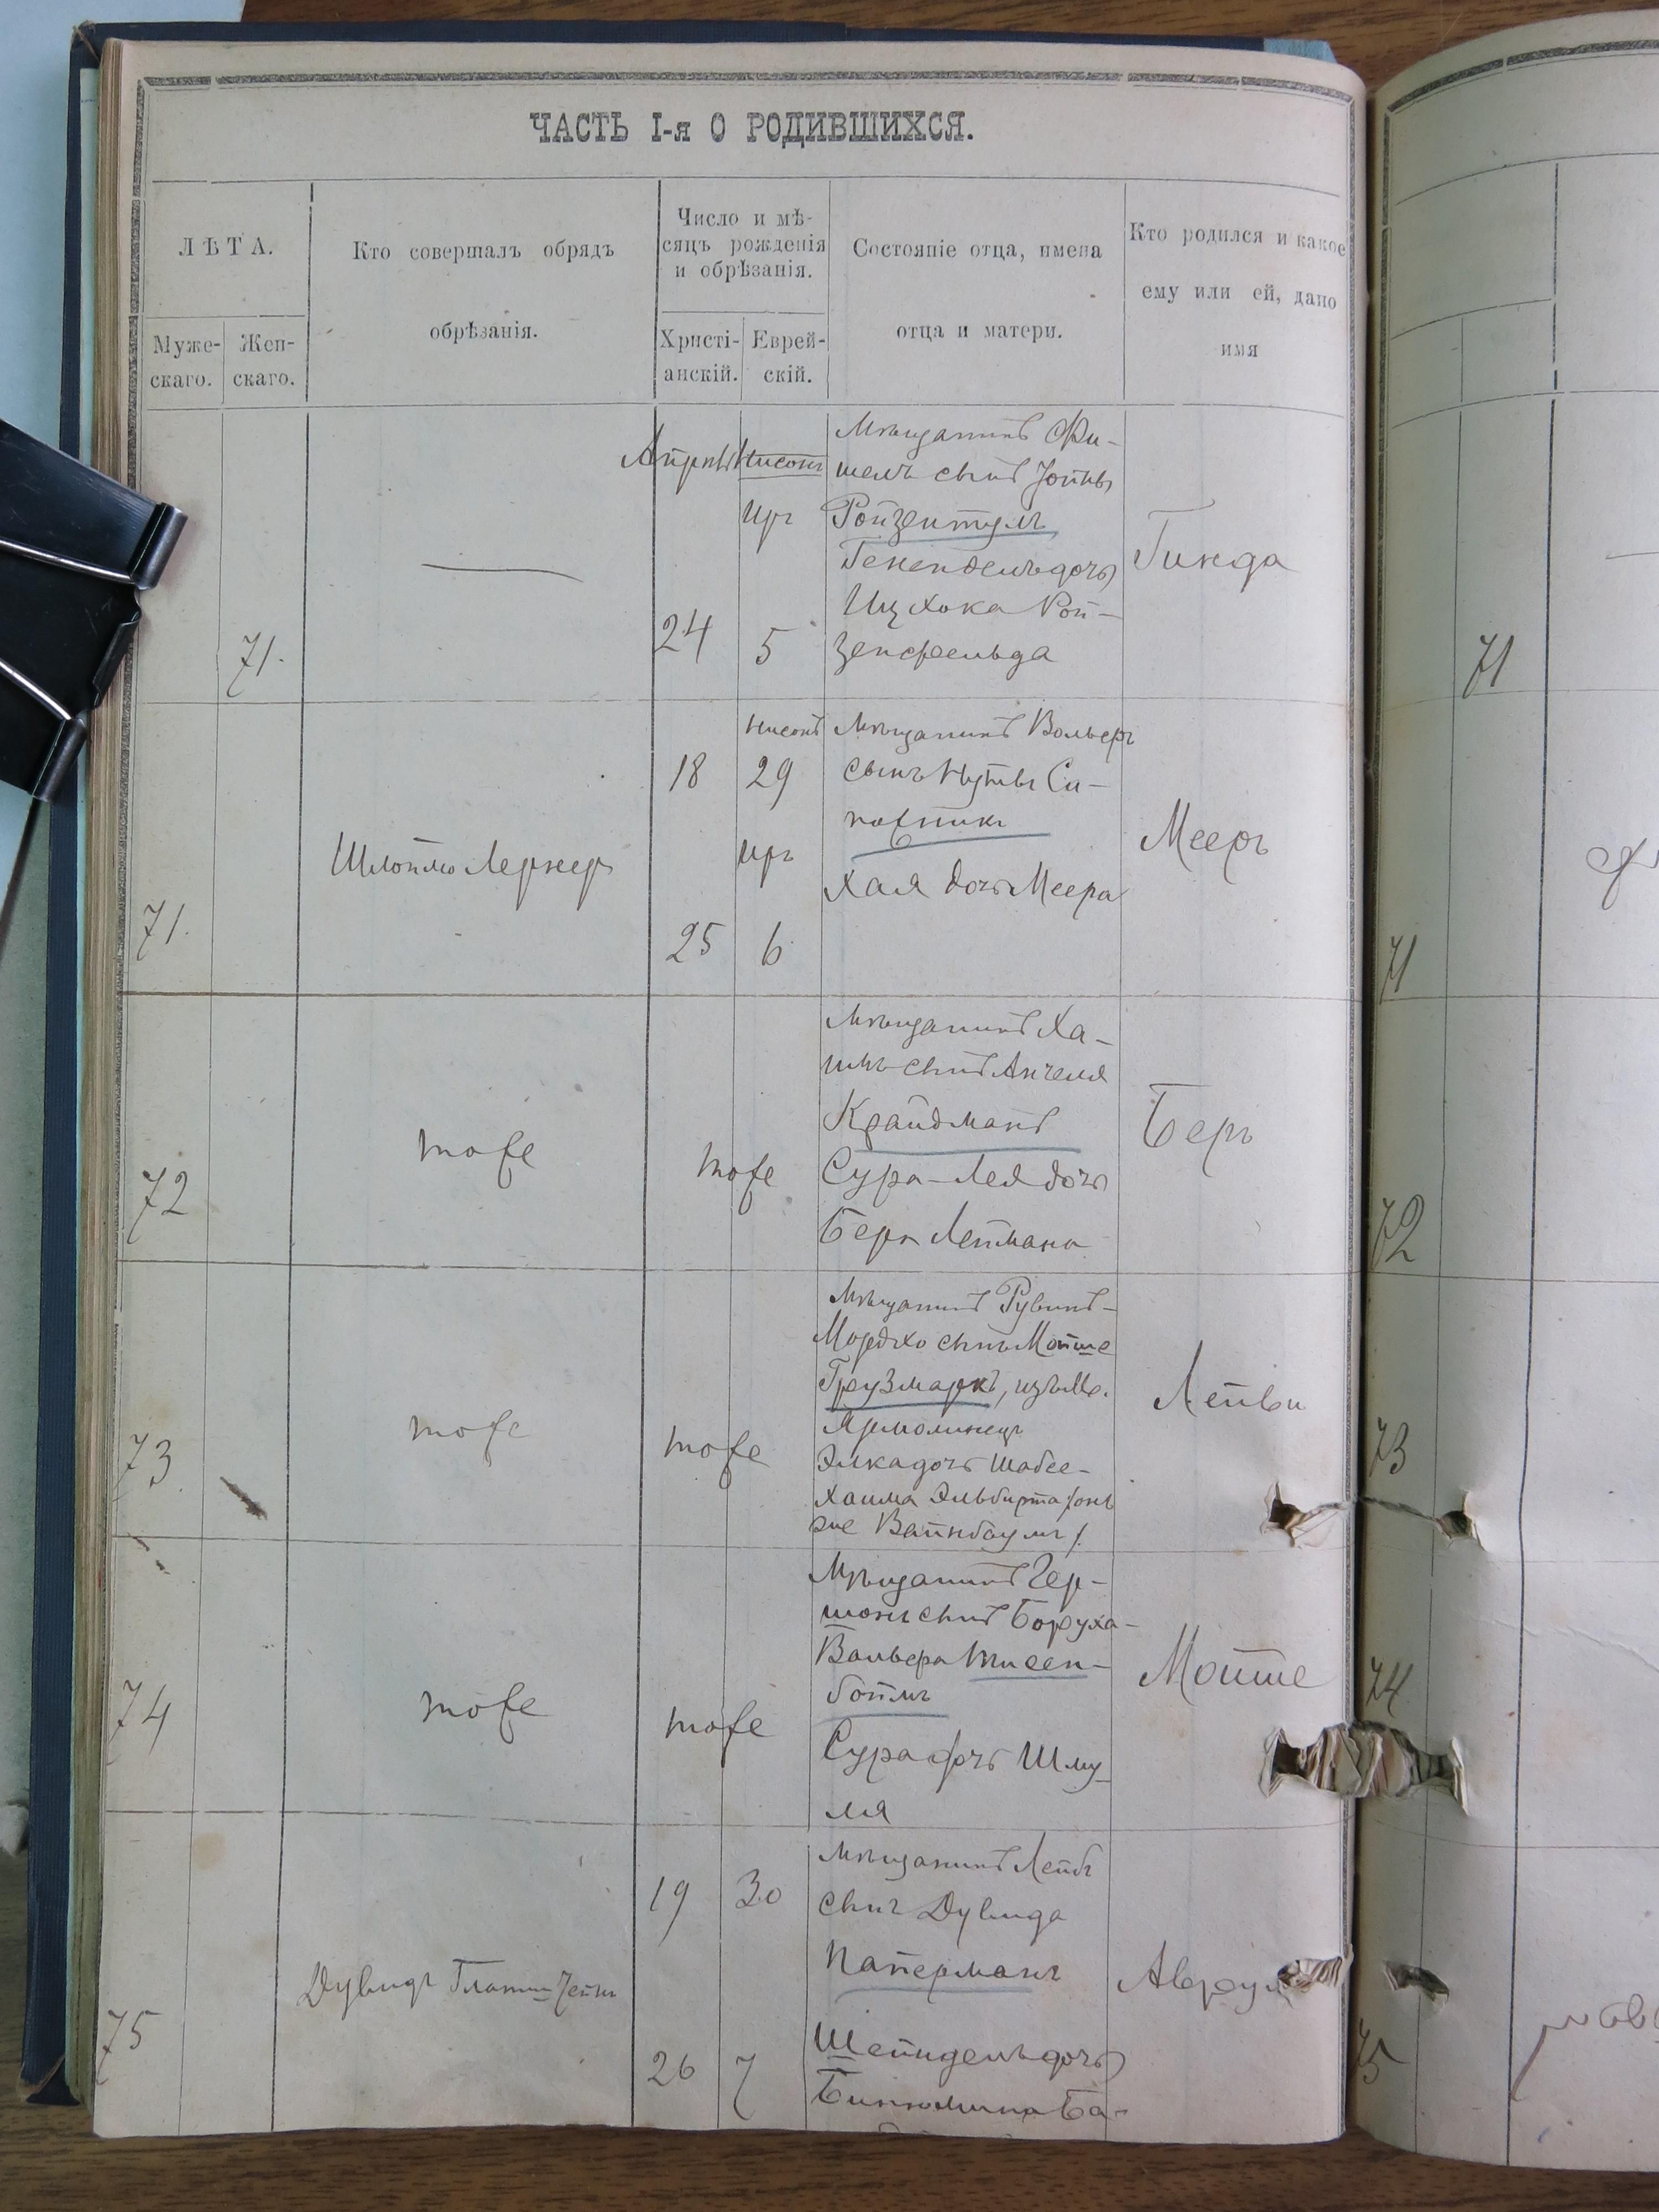 ЧАСТЬ I-я О РОДИВШИХСЯ.
ЛѢТА.
Муже-
скаго.
Жен-
скаго.
Кто совершалъ обрядъ
обрѣзанія.
Число и мѣ-
сяцъ рожденія
и обрѣзанія.
Христі-
анскій.
Еврей-
скій.
Состояніе отца, имена
отца и матери.
Кто родился и какое
ему или ей, дано
имя
71.
Апрель
24
Нисонъ
Иръ
5
Мѣщанинъ Фи-
шель сынъ Іойны
Ройзентулъ
Генендель дочь
Ицхока Рой-
зенфельда
Гинда
71
71.
Шлоймо Лернеръ
18
25
Нисонъ
29
Иръ
6
Мѣщанинъ Вольфъ
сынъ Нуты Са-
пожникъ
Хая дочь Меера
Мееръ
71
72
тоже
тоже
Мѣщанинъ Ха-
имъ сынъ Анчеля
Крайдманъ
Сура-Лея дочь
Бера Леймана
Беръ
72
73
тоже
тоже
Мѣщанинъ Рувинъ-
Мордхо сынъ Мойше
Грузмаркъ, изъ м.
Ярмолинецъ
Элка дочь Шабсе-
Хаима Эльбирта /онъ
же Вайнбаумъ/.
Лейви
73
74
тоже
тоже
Мѣщанинъ Гер-
шонъ сынъ Боруха-
Вольфа Тисен-
боймъ
Сура дочь Шму-
ля
Мойше
74
75
Дувидъ
19
30
26
7
Мѣщанинъ Лейбъ
сынъ Дувида
Паперманъ
Шейндель дочь
Биньомина Ба-
75